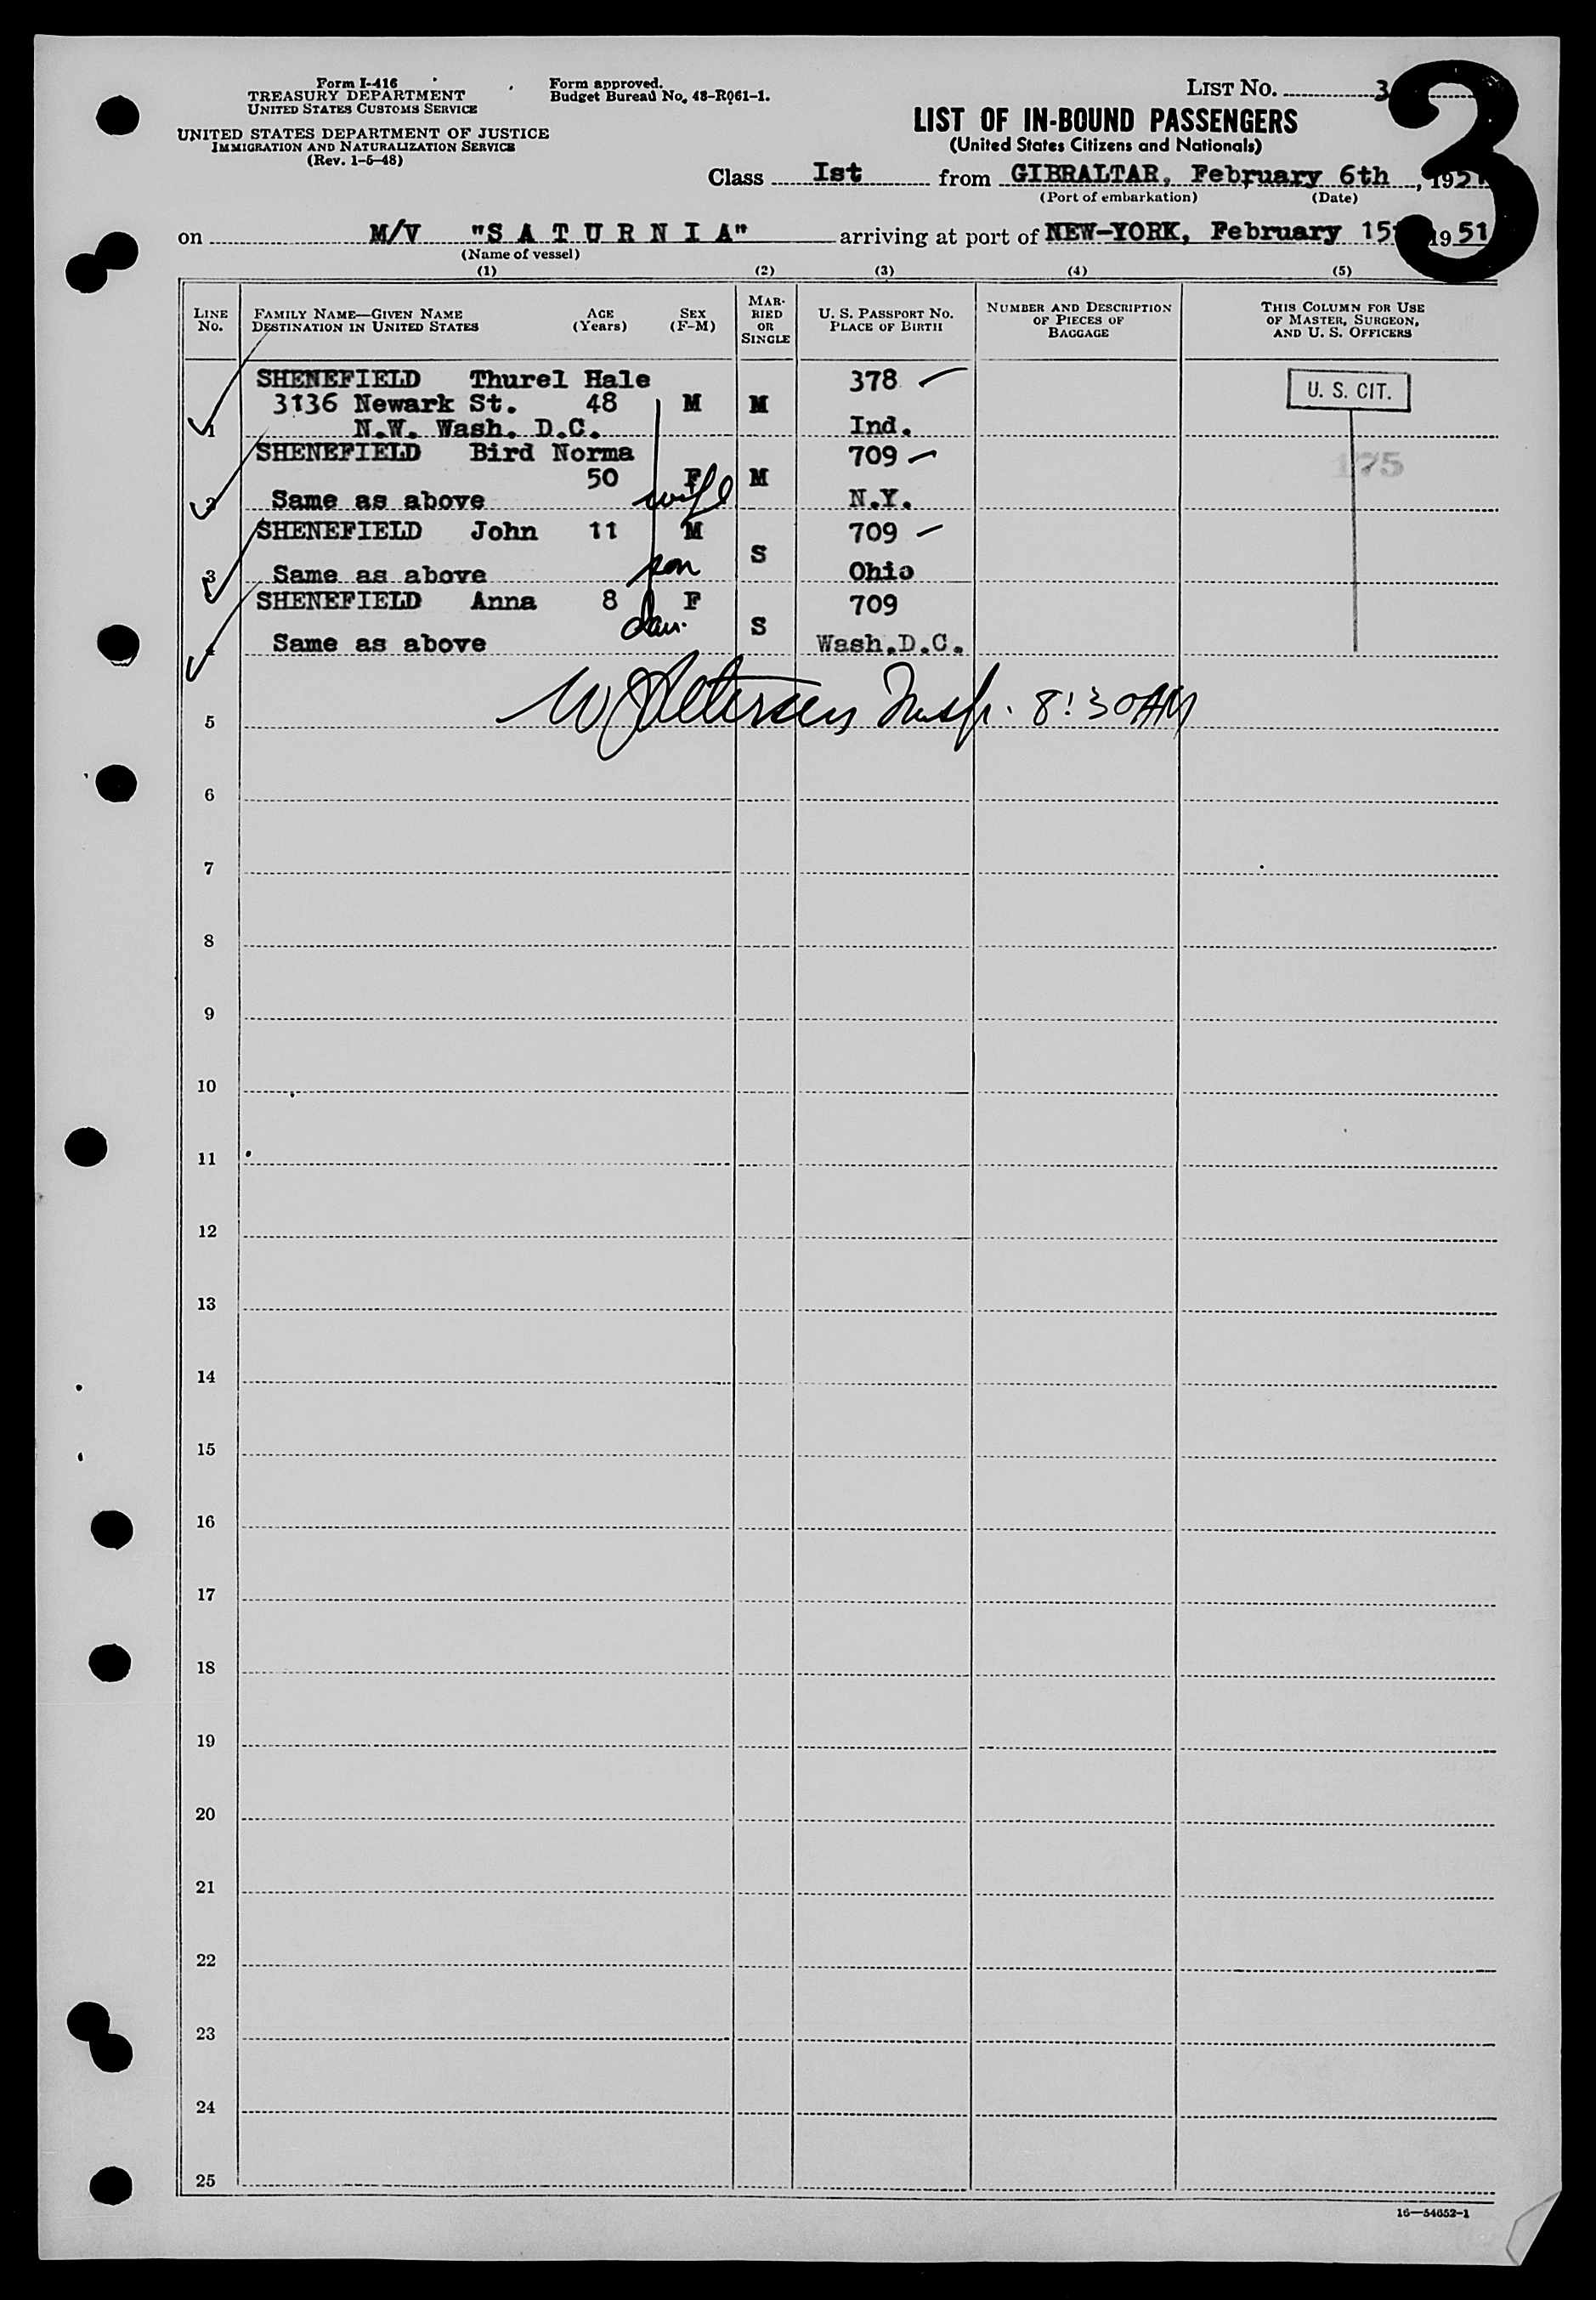 Form I-416
TREASURY DEPARTMENT
UNITED STATES CUSTOMS SERVICE
UNITED STATES DEPARTMENT OF JUSTICE
IMMIGRATION AND NATURALIZATION SERVICE
(Rev. 1-5-48)
Form approved.
Budget Bureau No. 43-R061-1.
LIST No. 3
3
LIST OF IN-BOUND PASSENGERS
(United States Citizens and Nationals)
Class Ist from GIBRALTAR, February 6th, 1951
(Port of embarkation) (Date)
on M/V "S A T U R N I A" arriving at port of NEW-YORK, February 15 1951
(Name of vessel)
(1) (2) (3) (4) (5)
LINE No. FAMILY NAME—GIVEN NAME DESTINATION IN UNITED STATES AGE (Years) SEX (F-M) MARRIED OR SINGLE U. S. PASSPORT No. PLACE OF BIRTH NUMBER AND DESCRIPTION OF PIECES OF BAGGAGE THIS COLUMN FOR USE OF MASTER, SURGEON, AND U. S. OFFICERS
SHENEFIELD Thurel Hale 378
U. S. CIT.
3136 Newark St. 48 M M
1 N.W. Wash. D.C. Ind.
SHENEFIELD Bird Norma 709
175
50 F M
2 Same as above wife N.Y.
SHENEFIELD John 11 M 709
S
3 Same as above son Ohio
SHENEFIELD Anna 8 F 709
dau. S
4 Same as above Wash.D.C.
W Petersen Insp. 8:30AM
5
6
7
8
9
10
11
12
13
14
15
16
17
18
19
20
21
22
23
24
25
16—54652-1